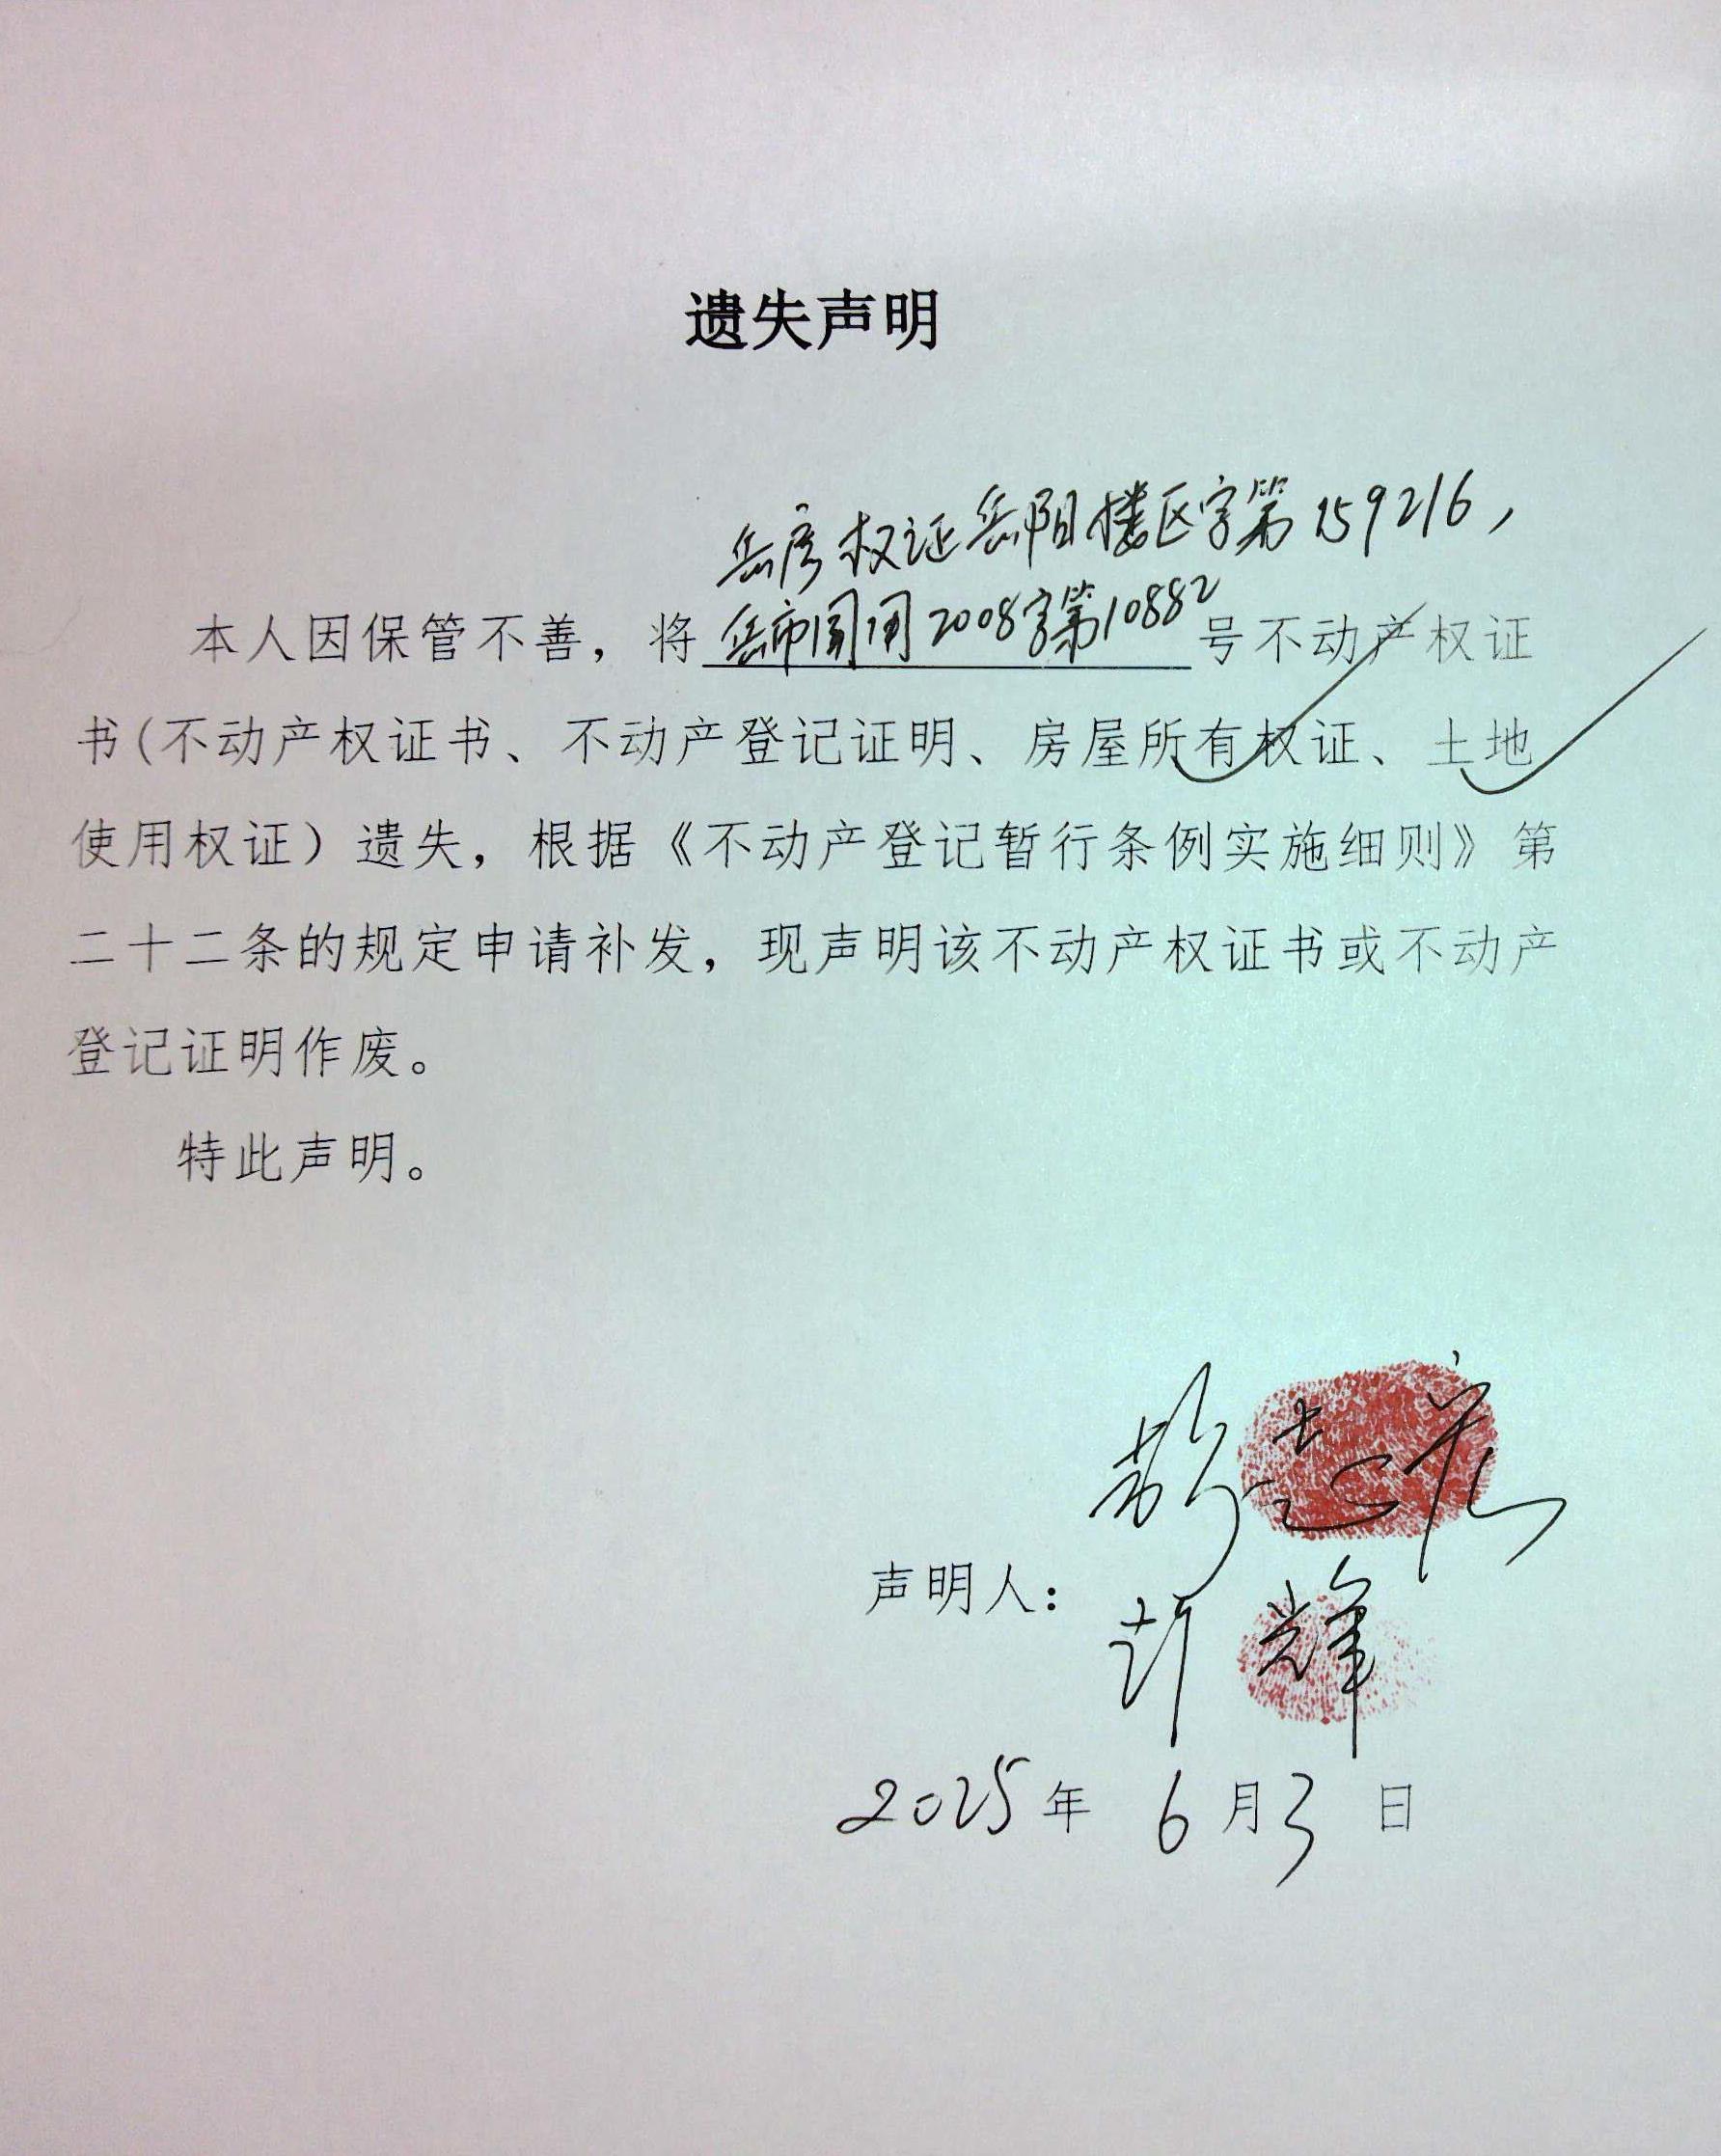 遗失声明
岳房权证岳阳楼区字第159216，
本人因保管不善，将岳市国用2008字第10882号不动产权证
书(不动产权证书、不动产登记证明、房屋所有权证、土地
使用权证）遗失，根据《不动产登记暂行条例实施细则》第
二十二条的规定申请补发，现声明该不动产权证书或不动产
登记证明作废。
特此声明。
声明人：
许辉
2025年6月3日